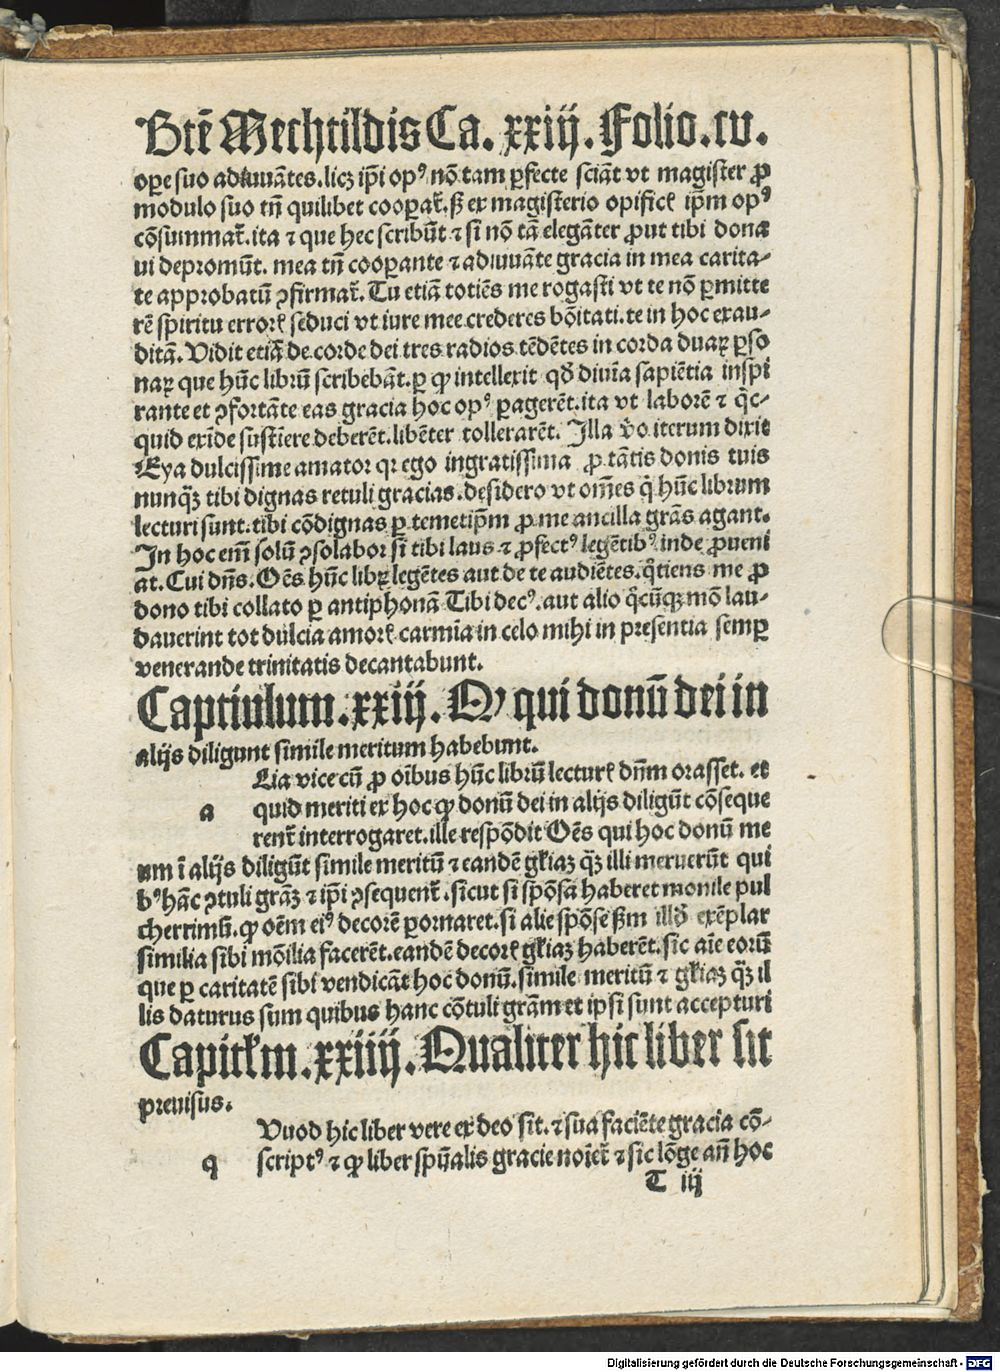 Btē Mechtildis Ca. xxiij. Folio.cv.
oꝑe suo adiuuātes.licꝫ ip̄i opꝰ nō tam ꝑfecte sciāt vt magister ꝓ
modulo suo tn̄ quilibet cooꝑat̄.ꝭ ex magisterio opific̄ ip̄m opꝰ
cōsummat̄.ita ⁊ que hec scribūt ⁊ si nō tā elegāter ꝓut tibi dona
ui depromūt. mea tn̄ cooꝑante ⁊ adiuuāte gracia in mea carita-
te approbatū ꝯfirmat̄.Tu etiā totiēs me rogasti vt te nō ꝑmitte
rē spiritu error̄ seduci vt iure mee crederes bōitati.te in hoc exau-
ditā.Vidit etiā de corde dei tres radios tēdētes in corda duaꝝ ꝑso
naꝝ que hūc librū scribebāt.ꝑ ꝙ intellexit qđ diuīa sapiētia inspi
rante et ꝯfortāte eas gracia hoc opꝰ ꝑagerēt.ita vt laborē ⁊ q̄c-
quid exīde sustīere deberēt.libēter tollerarēt. Illa v̄o iterum dixit
Eya dulcissime amator qꝛ ego ingratissima ꝓ tātis donis tuis
nunq̄ꝫ tibi dignas retuli gracias.desidero vt om̄es q̄ hūc librum
lecturi sunt.tibi cōdignas ꝑ temetip̄m ꝓ me ancilla grās agant.
In hoc em̄ solū ꝯsolabor si tibi laus ⁊ ꝓfectꝰ legētibꝰ inde ꝓueni
at.Cui dn̄s.Oēs hūc libꝝ legētes aut de te audiētes.q̄tiens me ꝓ
dono tibi collato ꝑ antiphonā Tibi decꝰ.aut alio q̄cūqꝫ mō lau-
dauerint tot dulcia amor̄ carmīa in celo mihi in presentia semꝑ
venerande trinitatis decantabunt.
Captiulum.xxiij. Q qui donū dei in
alijs diligunt simile meritum habebunt.
Lia vice cū ꝓ oībus hūc librū lectur̄ dn̄m orasset. et
a quid meriti ex hoc ꝙ donū dei in alijs diligūt cōseque
rent̄ interrogaret.ille respōdit Oēs qui hoc donū me
um ī alijs diligūt simile meritū ⁊ eandē gl̄iaꝫ q̄ꝫ illi meruerūt qui
bꝰ hāc ꝯtuli grāꝫ ⁊ ip̄i ꝯsequent̄.sicut si spōsa haberet monile pul
cherrimū.ꝙ oēm eiꝰ decorē ꝑornaret.si alie spōse ẜm illđ exēplar
similia sibi mōilia facerēt.eandē decor̄ gl̄iaꝫ haberēt.sic aīe eorū
que ꝑ caritatē sibi vendicāt hoc donū.simile meritū ⁊ gl̄iaꝫ q̄ꝫ il
lis daturus sum quibus hanc cōtuli grām et ipsi sunt accepturi
Capitl̄m.xxiiij.Qualiter hic liber sit
preuisus.
Vuod hic liber vere ex deo sit.⁊ sua faciēte gracia cō-
q scriptꝰ ⁊ ꝙ liber sp̄ualis gracie noīet̄ ⁊ sic lōge an̄ hoc
T iij
Digitalisierung gefördert durch die Deutsche Forschungsgemeinschaft - DFG